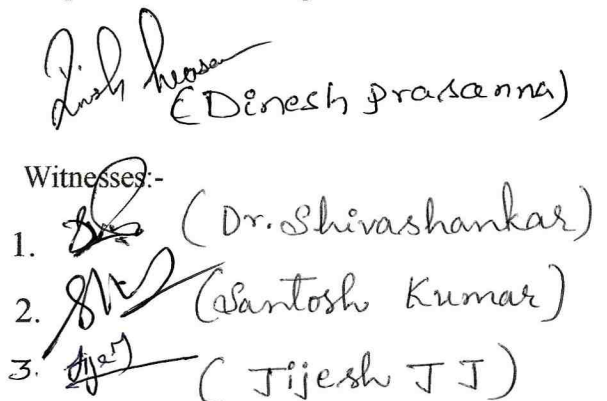 (Dinesh Prasanna)
Witnesses:-
1. (Dr. Shivashankar)
2. (Santosh Kumar)
3. Jijesh (Jijesh J J)